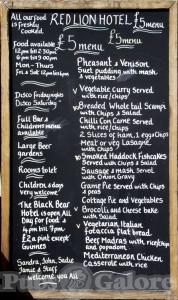 All our food
is freshly
cooked.
RED LION HOTEL
£5 menu
£5 menu
£5 menu
Food available
12pm till 2.30pm
6pm till 9.00pm
Mon - Thurs
Fri & Sat 12pm till 6pm
Disco Friday nights
Disco Saturday
Full Bar &
Childrens menu
available
Large Beer
gardens
Rooms to let
Children & dogs
very welcome
The Black Bear
Hotel is open All
Day for food &
£2 a pint except
Guinness
Sandra, John, Sadie
Jamie & Staff
welcome you All
Pheasant & Venison
Suet pudding with mash
& vegetables
V Vegetable Curry served
with rice/chips
Breaded Whole tail Scampi
with Chips & Salad
Chilli Con Carne served
with rice/chips
2 Slices of ham, 2 eggs & Chips
Meat or veg Lasagne
with Chips
Smoked Haddock Fishcakes
Served with Chips & salad
Sausage & mash served
with Onion Gravy
Game Pie served with Chips
& peas
Cottage Pie and Vegetables
V Broccoli and Cheese bake
with Salad
V Vegetarian Italian
Focaccia flat bread
Beef Madras with rice/chips
and popadom
Mediterranean Chicken
Casserole with rice